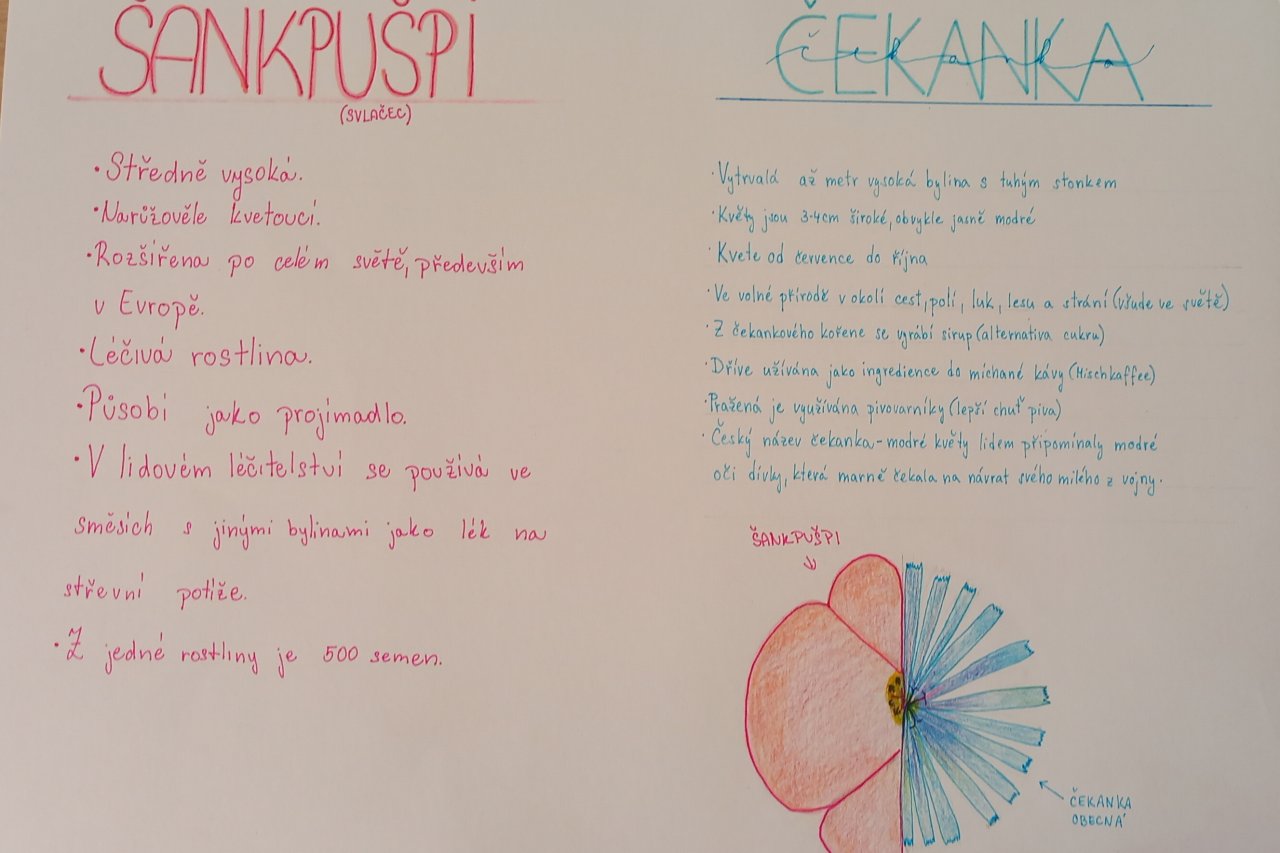 ŠANKPUŠPI
(SVLAČEC)
·Středně vysoká.
·Narůžověle kvetoucí.
·Rozšířena po celém světě, především
v Evropě.
·Léčivá rostlina.
·Působí jako projímadlo.
·V lidovém léčitelství se používá ve
směsích s jinými bylinami jako lék na
střevní potíže.
·Z jedné rostliny je 500 semen.
ČEKANKA
čekanka
·Vytrvalá až metr vysoká bylina s tuhým stonkem
·Květy jsou 3-4cm široké, obvykle jasně modré
·Kvete od července do října
·Ve volné přírodě v okolí cest, polí, luk, lesu a strání (všude ve světě)
·Z čekankového kořene se vyrábí sirup (alternativa cukru)
·Dříve užívána jako ingredience do míchané kávy (Mischkaffee)
·Pražená je využívána pivovarníky (lepší chuť piva)
·Český název čekanka - modré květy lidem připomínaly modré
oči dívky, která marně čekala na návrat svého milého z vojny.
ŠANKPUŠPI
ČEKANKA
OBECNÁ